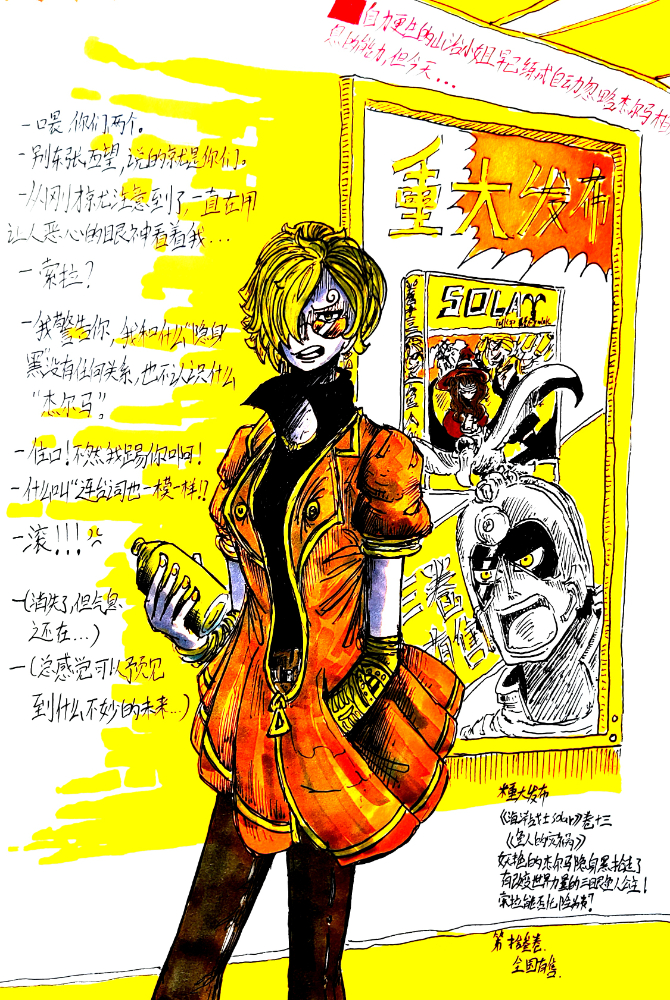 自力更生的山治小姐早已练成自动忽略杰尔马相
息的能力,但今天...
-喂 你们两个。
-别东张西望,说的就是你们。
-从刚才就注意到了,一直在用
让人恶心的眼神看着我...
-索拉?
-我警告你 我和什么“隐身
黑”没有任何关系,也不认识什么
“杰尔马”。
-住口!不然我踢你啊!
-什么叫“连台词也一模一样!!
-滚!!!
-(消失了,但气息
还在...)
-(总感觉可以预见
到什么不妙的未来...)
重大发布
SOLA
三卷
有售
*重大发布
《海洋战士SOLA》卷十三
《鱼人的灾祸》
的杰尔马隐身黑抢走了
有改变世界力量的三眼鱼人公主!
索拉能否化险为夷?
第拾叁卷
全国有售.